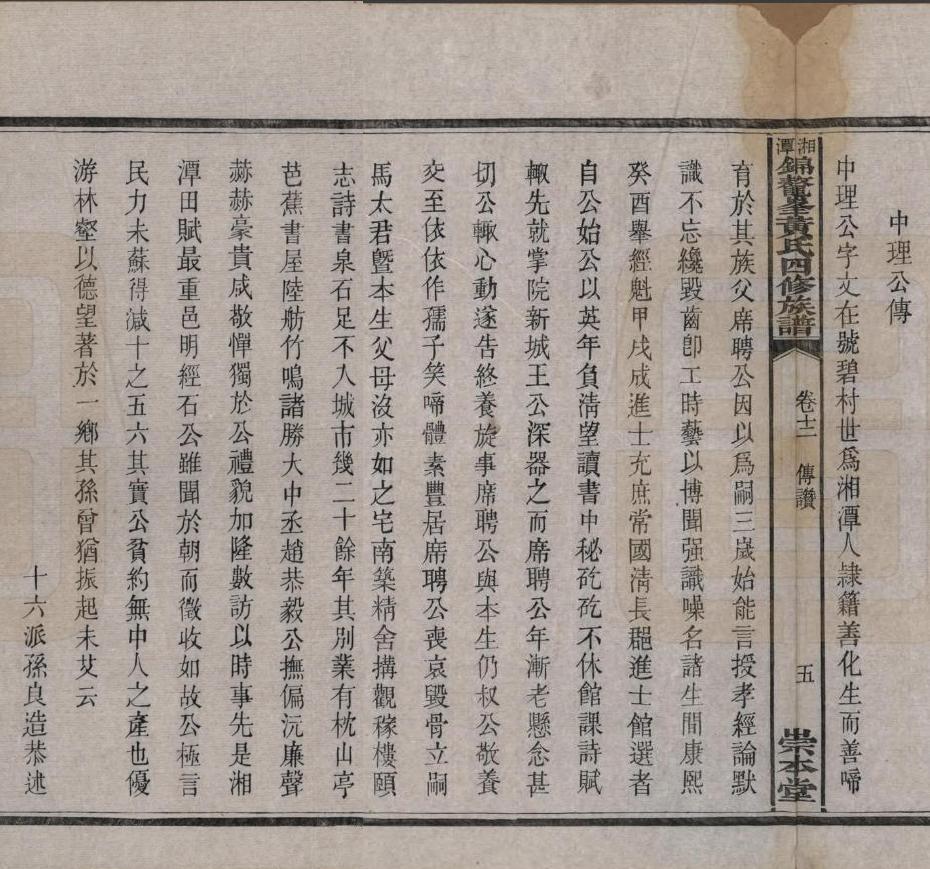 中理公傳
中理公字文在號碧村世爲湘潭人隷籍善化生而善啼
湘潭錦鰲峯黃氏四修族譜
卷十二
傳讚
五
崇本堂
育於其族父席聘公因以爲嗣三歲始能言授孝經論默
識不忘纔毀齒卽工時藝以博聞强識噪名諸生間康熙
癸酉舉經魁甲戌成進士充庶常國淸長䚈進士館選者
自公始公以英年負淸望讀書中秘矻矻不休館課詩賦
輙先就掌院新城王公深器之而席聘公年漸老懸念甚
切公輙心動遂告終養旋事席聘公與本生仍叔公敬養
交至依依作孺子笑啼體素豐居席聘公喪哀毀骨立嗣
馬太君曁本生父母沒亦如之宅南築精舍搆觀稼樓頤
志詩書泉石足不入城市幾二十餘年其別業有枕山亭
芭蕉書屋陸舫竹鳴諸勝大中丞趙恭毅公撫偏沅廉聲
赫赫豪貴咸敬憚獨於公禮貌加隆數訪以時事先是湘
潭田賦最重邑明經石公雖聞於朝而徵收如故公極言
民力未蘇得減十之五六其實公貧約無中人之產也優
游林壑以德望著於一鄉其孫曾猶振起未艾云
十六派孫良造恭述